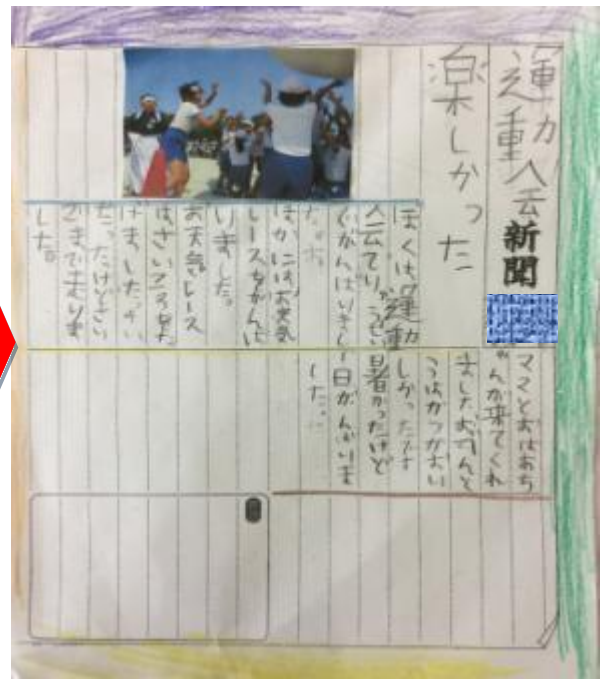 運動会新聞
楽しかった
ぼくは、運動
会で
がんばりまし
た。
ほかにはお天気
レースをがんば
りました。
お天気レース
はさいころをな
げました。
だったけどさい
ごまで走りま
した。
ママとおばあち
ゃんが来てくれ
ましたおべんと
おい
しかったです
暑かったけど
一日がんばりま
した。